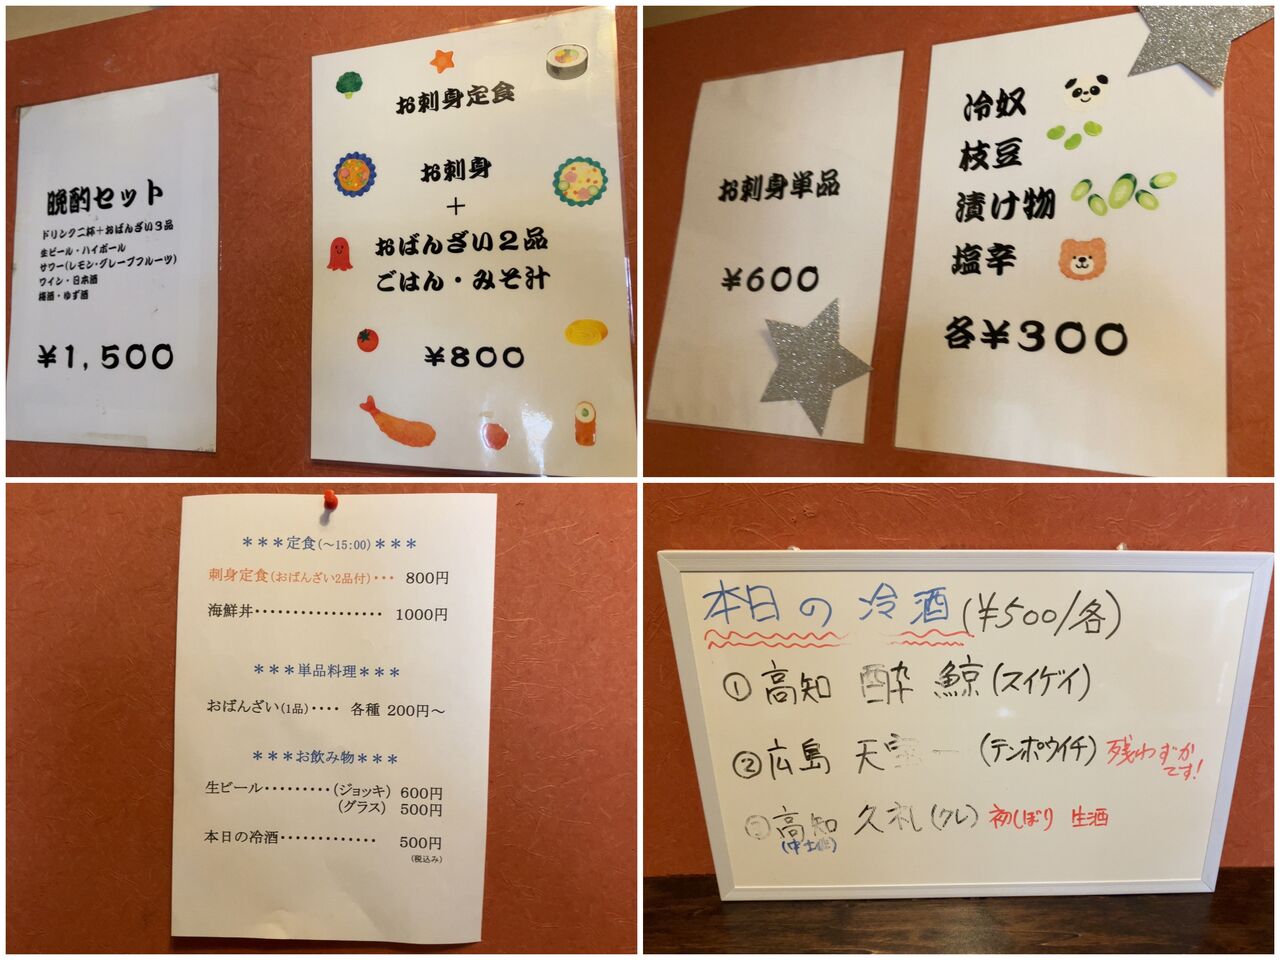 晩酌セット
ドリンク二杯＋おばんざい3品
生ビール・ハイボール
サワー(レモン・グレープフルーツ)
ワイン・日本酒
梅酒・ゆず酒
￥1,500
お刺身定食
お刺身
＋
おばんざい2品
ごはん・みそ汁
￥800
お刺身単品
￥600
冷奴
枝豆
漬け物
塩辛
各￥300
＊＊＊定食(～15:00)＊＊＊
刺身定食(おばんざい2品付)・・・ 800円
海鮮丼・・・・・・・・・・・・・・・・・ 1000円
＊＊＊単品料理＊＊＊
おばんざい(1品)・・・・ 各種 200円～
＊＊＊お飲み物＊＊＊
生ビール・・・・・・・・・(ジョッキ) 600円
(グラス) 500円
本日の冷酒・・・・・・・・・・・・・ 500円
(税込み)
本日の冷酒(¥500/各)
①高知 酔鯨(スイゲイ)
②広島 天宝一(テンポウイチ)残わずかです!
③高知 久礼(クレ) 初しぼり 生酒